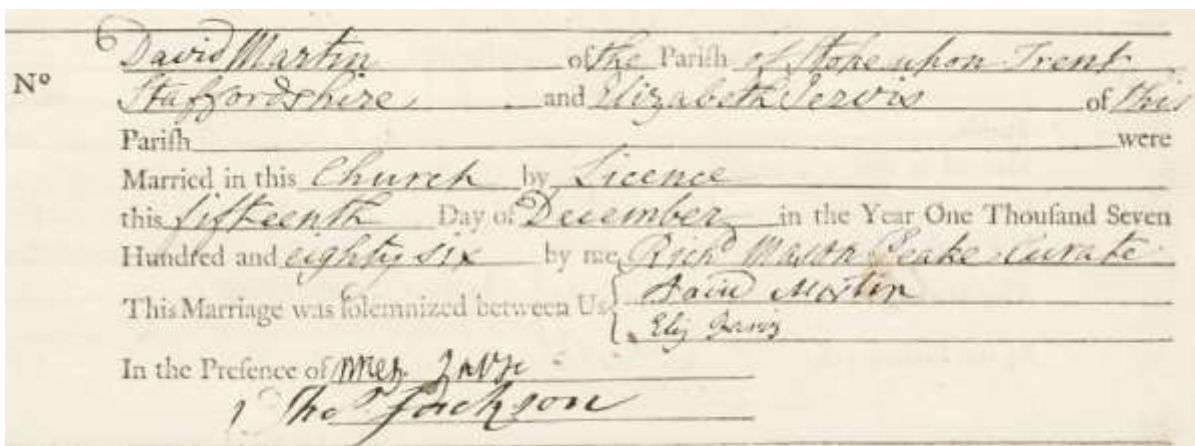 David Martin of the Parish of Stoke upon Trent
Nº Staffordshire and Elizabeth Jervis of this
Pariſh were
Married in this Church by Licence
this fifteenth Day of December in the Year One Thouſand Seven
Hundred and eighty six by me Richd Mason Peake Curate
This Marriage was ſolemnized between Us David Martin
Eliz Jarvis
In the Preſence of
Thos Jackson